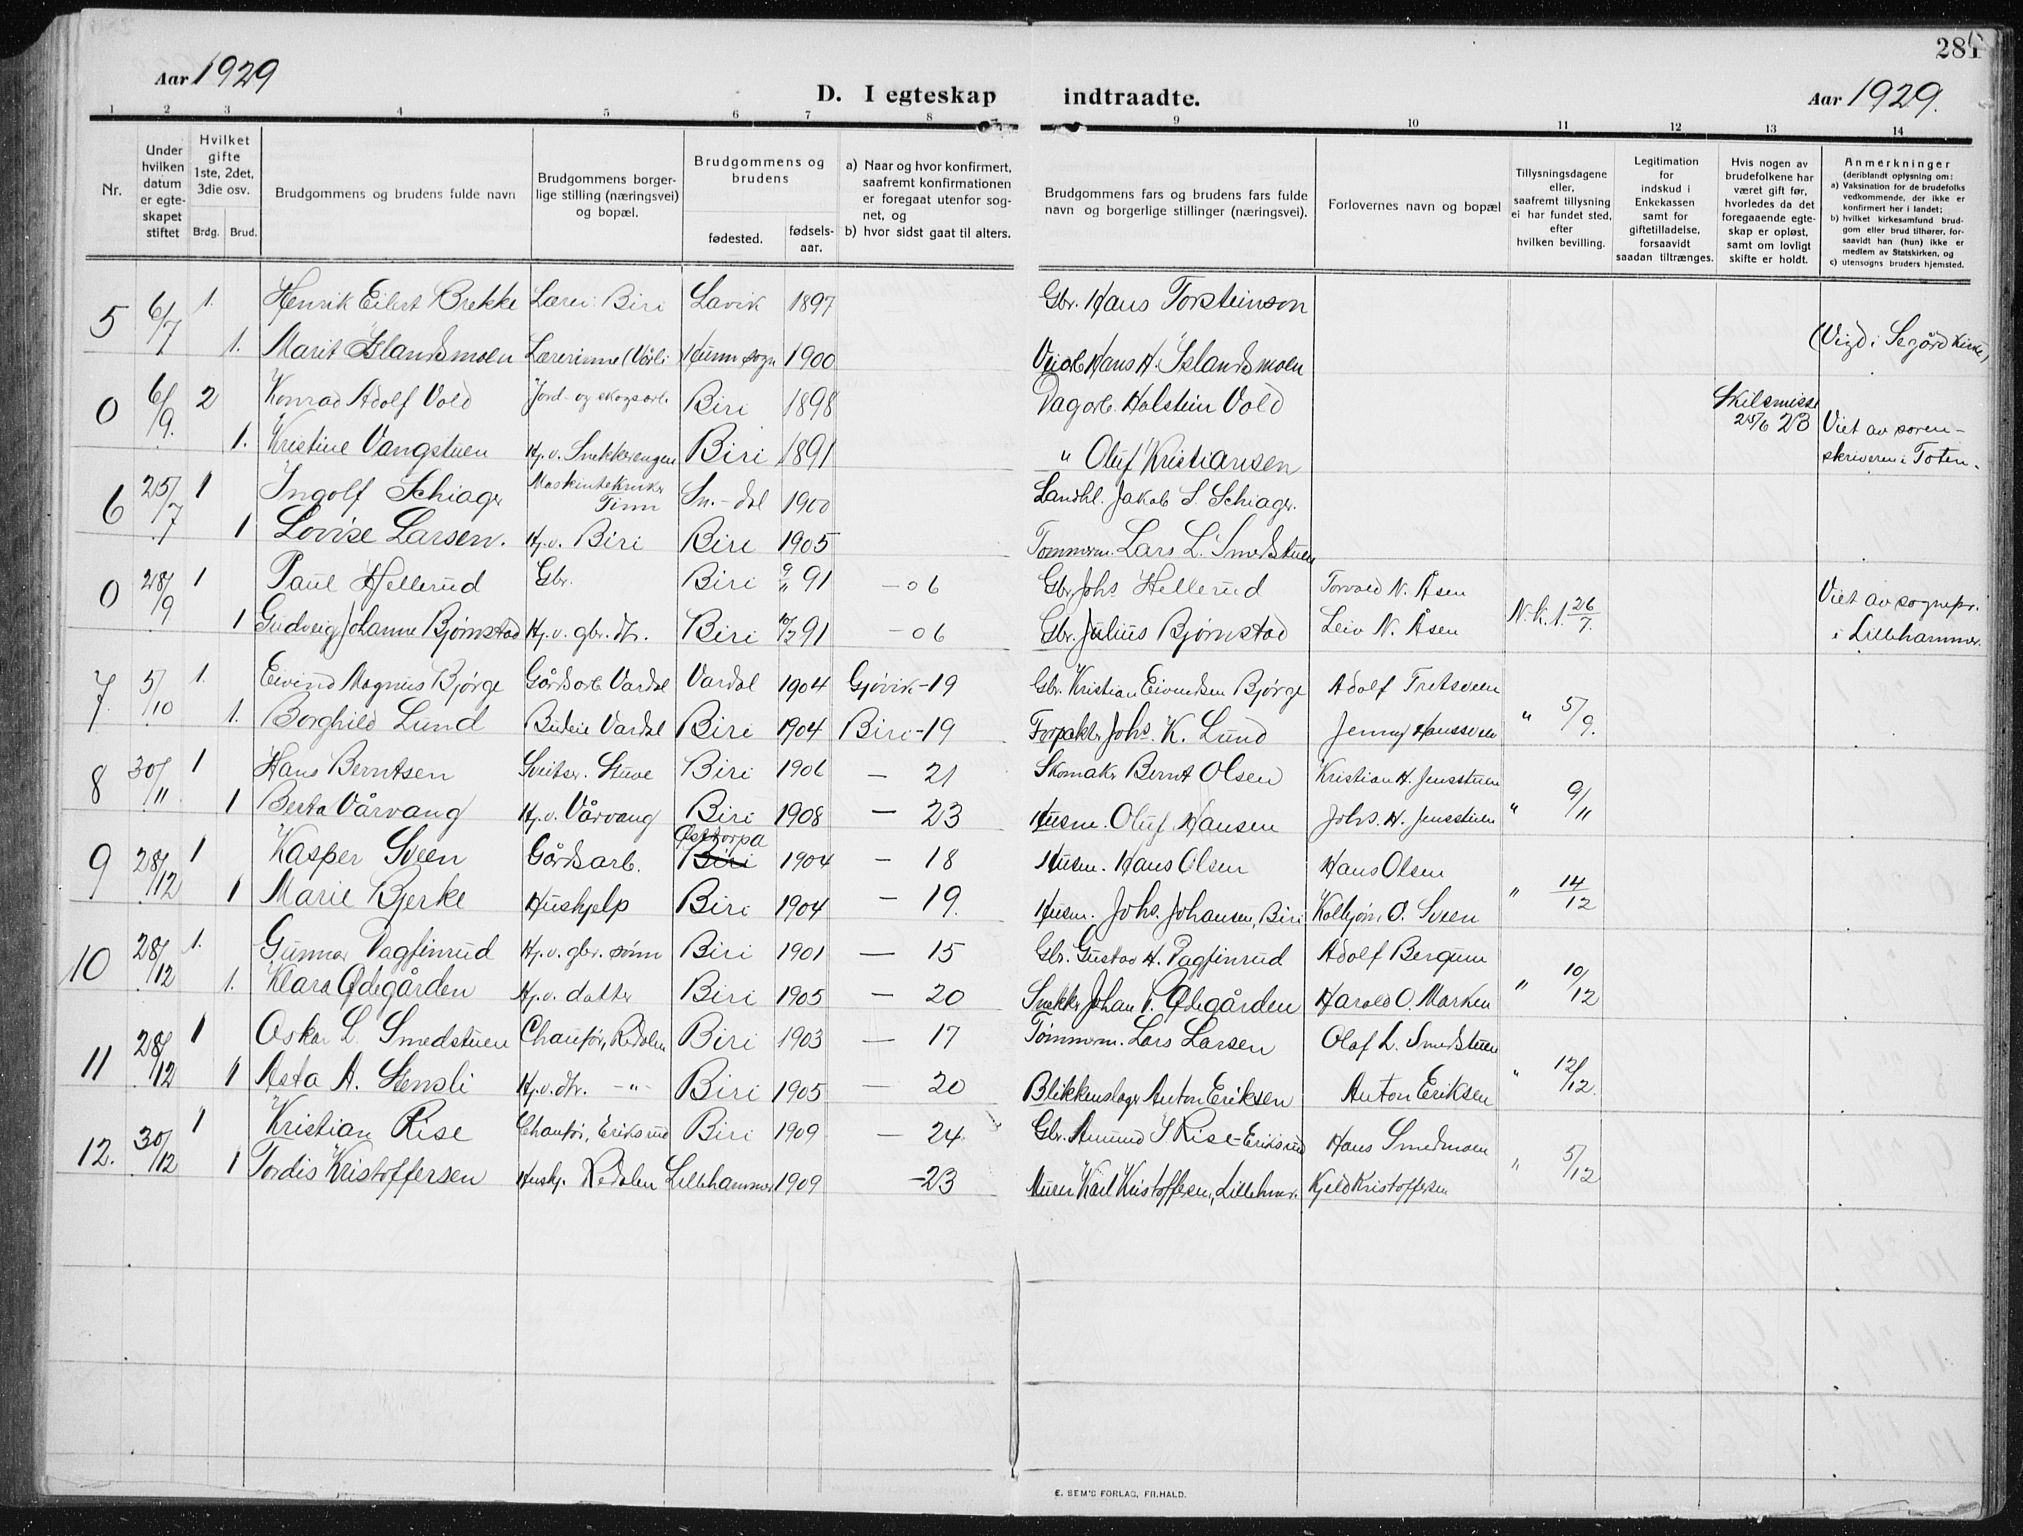 281
Aar 1929
D. I egteskap indtraadte.
Aar 1929.
1 2 3 4 5 6 7 8 9 10 11 12 13 14
Nr.
Under hvilken datum er egteskapet stiftet
Hvilket gifte 1ste, 2det, 3die osv.
Brdg. Brud.
Brudgommens og brudens fulde navn
Brudgommens borgerlige stilling (næringsvei) og bopæl.
Brudgommens og brudens
fødested.
fødselsaar.
a) Naar og hvor konfirmert, saafremt konfirmationen er foregaat utenfor sognet, og
b) hvor sidst gaat til alters.
Brudgommens fars og brudens fars fulde navn og borgerlige stillinger (næringsvei).
Forlovernes navn og bopæl
Tillysningsdagene eller, saafremt tillysning ei har fundet sted, efter hvilken bevilling.
Legitimation for indskud i Enkekassen samt for giftetilladelse, forsaavidt saadan tiltrænges.
Hvis nogen av brudefolkene har været gift før, hvorledes da det foregaaende egteskap er opløst, samt om lovligt skifte er holdt.
Anmerkninger (deriblandt oplysning om:
a) Vaksination for de brudefolks vedkommende, der ikke er konfirmert her i landet;
b) hvilket kirkesamfund brudgom eller brud tilhører, forsaavidt han (hun) ikke er medlem av Statskirken, og
c) utensogns bruders hjemsted.
5 6/7 1. Henrik Eilert Brekke Lærer Biri Lavik 1897 Gbr. Hans Torsteinson
1. Marit Islandsmoen Lærerinne (Vårli Hunn sogn 1900 Veiarb Hans H. Islandsmoen (Vigd i Segård Kirke)
0 6/9. 2 Konrad Adolf Vold Jord- og skogsarb. Biri 1898 Dagarb. Halstein Vold Skilsmisse 25/6 23
1. Kristine Vangstuen Hj.v. Snekkerengen Biri 1891 " Oluf Kristiansen Viet av sorenskriveren i Toten.
6 25/7 1 Ingolf Schiager Maskintekniker Tinn Sn.-dal 1900 Landhl. Jakob S. Schiager.
1 Lovise Larsen. Hj.v. Biri Biri 1905 Tømmerm. Lars L. Smedstuen
0 28/9 1 Paul Hellerud Gbr. Biri 9/11 91 -06 Gbr. Johs Hellerud Torvald N. Åsen
1 Gudveig Johanne Bjørnstad Hj.v. gbr. dtr. Biri 10/7 91 -06 Gbr. Julius Bjørnstad Leiv N. Åsen N.k.1. 26/7. Viet av sognepr. i Lillehammer.
7 5/10 1. Eivind Magnus Bjørge Gårdsarb Vardal Vardal 1904 Gjøvik-19 Gbr. Kristian Eivendsen Bjørge Adolf Fretsveen
1. Borghild Lund Budeie Vardal Biri 1904 Biri-19 Forpakter Johs. K. Lund Jenny Hanssveen " 5/9.
8 30/11 1 Hans Berntsen Sveitser. Stuve Biri 1906 - 21 Skomaker Bernt Olsen Kristian H. Jensstuen
1 Berta Vårvang Hj.v. Vårvang Biri 1908 - 23 Husm. Oluf Hansen Johs. H. Jensstuen " 9/11
9 28/12 1 Kasper Sveen Gårdsarb. Østtorpa Biri 1904 - 18 Husm. Hans Olsen Hans Olsen
1 Marie Bjerke Hushjelp Biri 1904 - 19. Husm. Johs. Johansen, Biri Kolbjørn O. Sveen " 14/12
10 28/12 1. Gunnar Dagfinrud Hj.v. gbr. sønn Biri 1901 - 15 Gbr. Gustav H. Dagfinrud Adolf Bergum
1. Klara Ødegården Hj.v. datter Biri 1905 - 20 Snekker Johan P. Ødegården Harald O. Marken " 10/12
11 28/12 1 Oskar L. Smedstuen Chaufør, Redalen Biri 1903 - 17 Tømmerm. Lars Larsen Olaf L. Smedstuen
1 Asta A. Stensli Hj.v. dtr. -"- Biri 1905 - 20 Blikkenslager Anton Eriksen Anton Eriksen " 12/12
12. 30/12 1 Kristian Rise Chaufør, Eriksrud Biri 1909 - 24 Gbr. Amund J Rise-Eriksrud Hans Smedmoen
1 Tordis Kristoffersen Hushj. Redalen Lillehammer 1909 -23 Murer Karl Kristoffersen, Lillehmr. Kjeld Kristoffersen " 5/12
E. SEM'S FORLAG, FR.HALD.